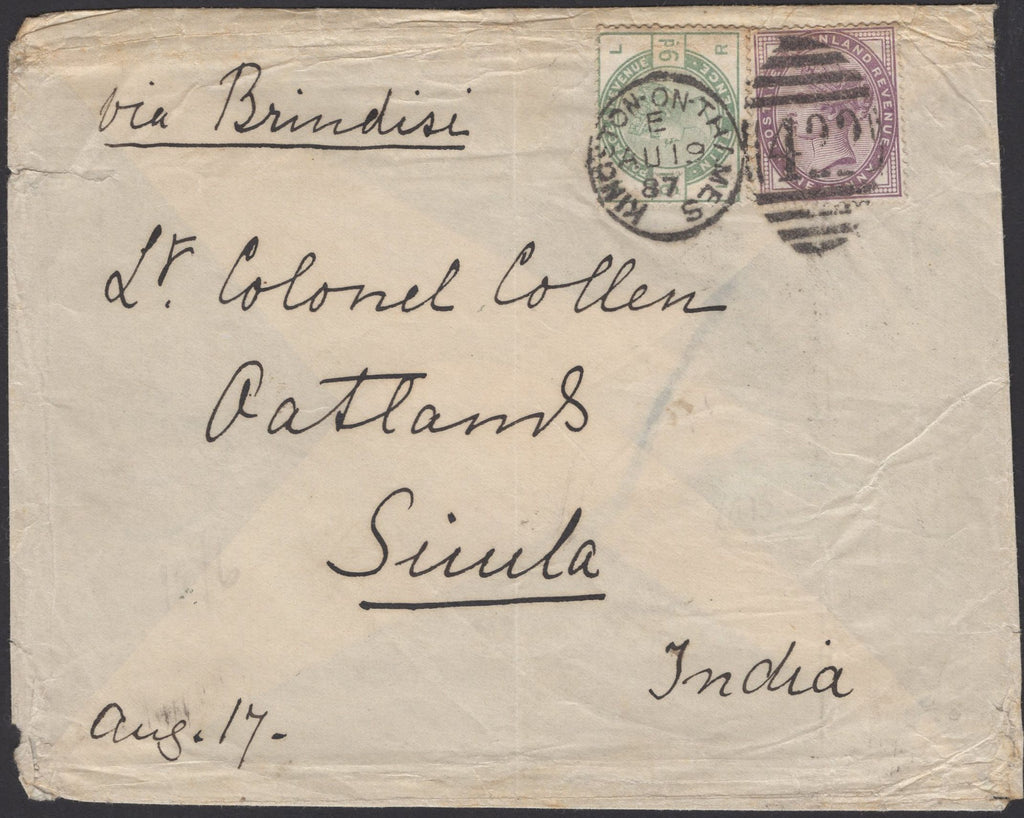 via Brindisi
KINGSTON-ON-THAMES
E
AU 19
87
L R
INLAND REVENUE
422
Lt. Colonel Collen
Oatlands
Simla
India
Aug. 17.